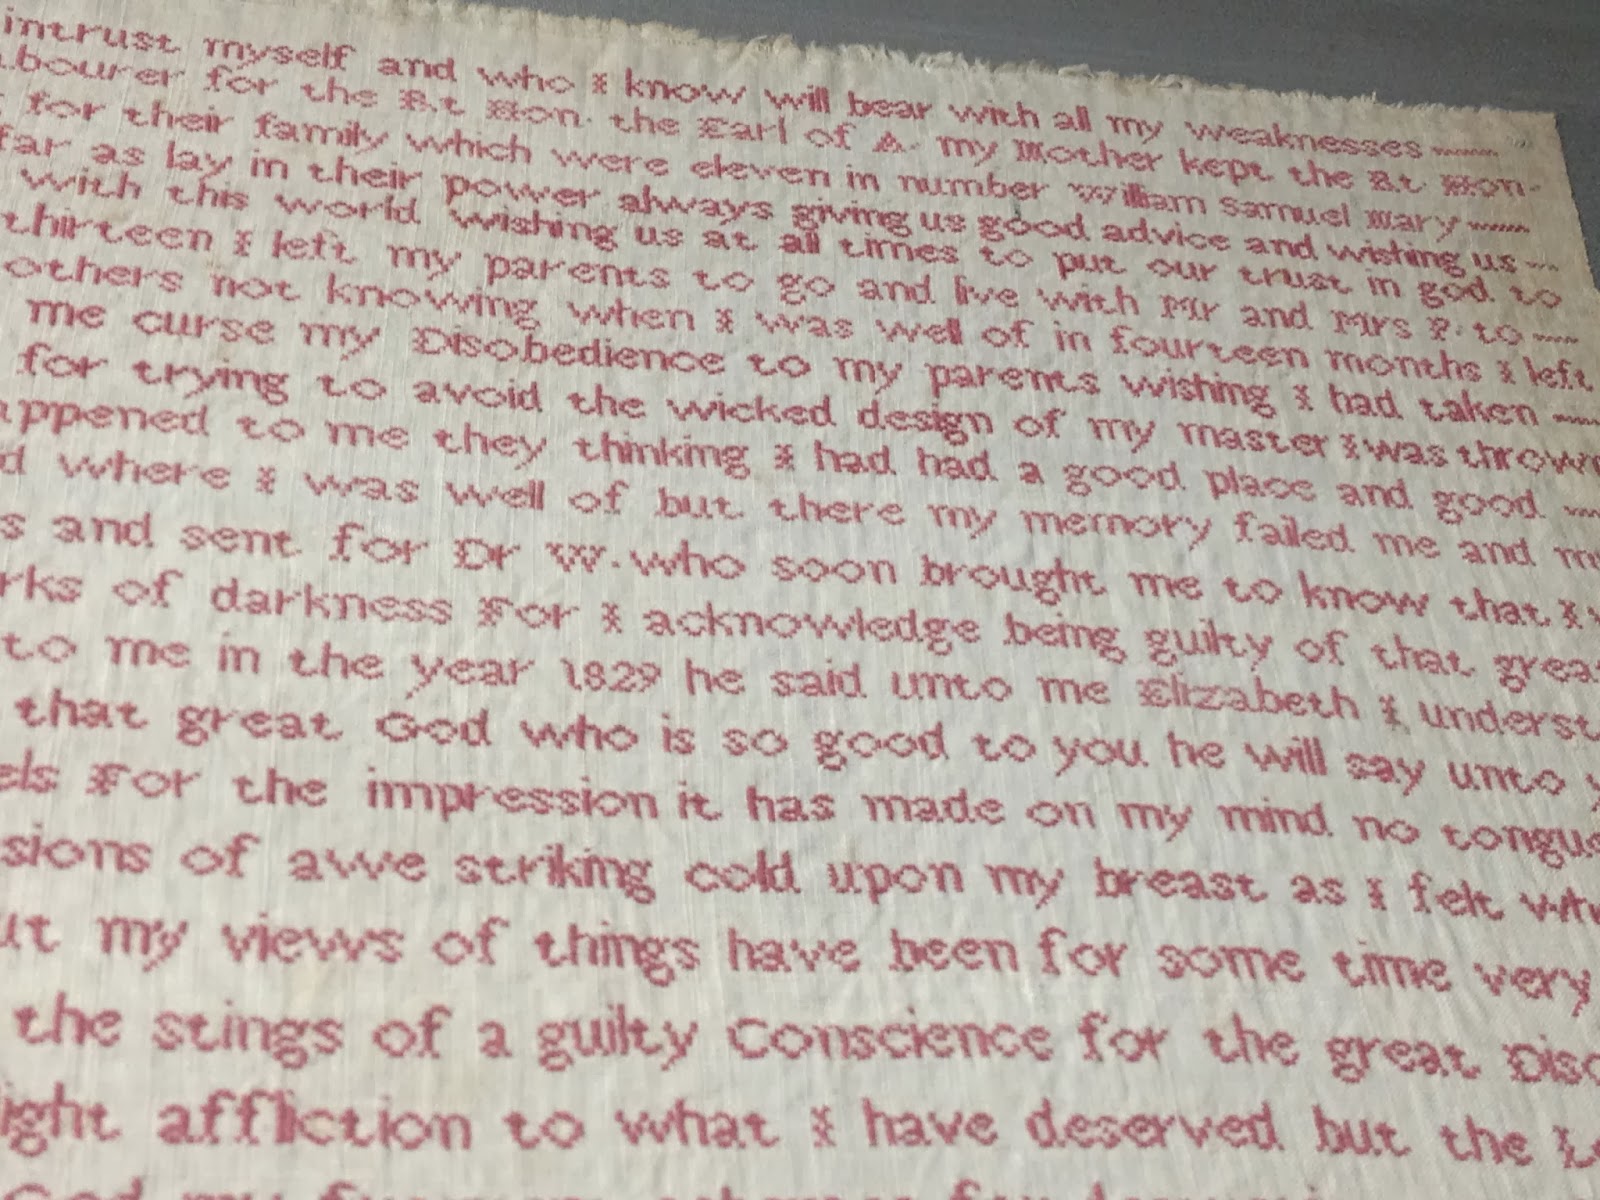 intrust myself and who I know will bear with all my weaknesses
bourer for the Rt Hon. the Earl of A. my Mother kept the Rt Hon.
for their family which were eleven in number William Samuel Mary
far as lay in their power always giving us good advice and wishing us
with this world wishing us at all times to put our trust in god to
thirteen I left my parents to go and live with Mr and Mrs P. to
others not knowing when I was well of in fourteen months I left
me curse my Disobedience to my parents wishing I had taken
for trying to avoid the wicked design of my master I was thrown
appened to me they thinking I had had a good place and good
d where I was well of but there my memory failed me and my
s and sent for Dr W. who soon brought me to know that I w
rks of darkness For I acknowledge being guilty of that great
to me in the year 1829 he said unto me Elizabeth I underst
that great God who is so good to you he will say unto y
els For the impression it has made on my mind no tongue
sions of awe striking cold upon my breast as I felt wh
ut my views of things have been for some time very
the stings of a guilty Conscience for the great Diso
ight affliction to what I have deserved but the L
God my